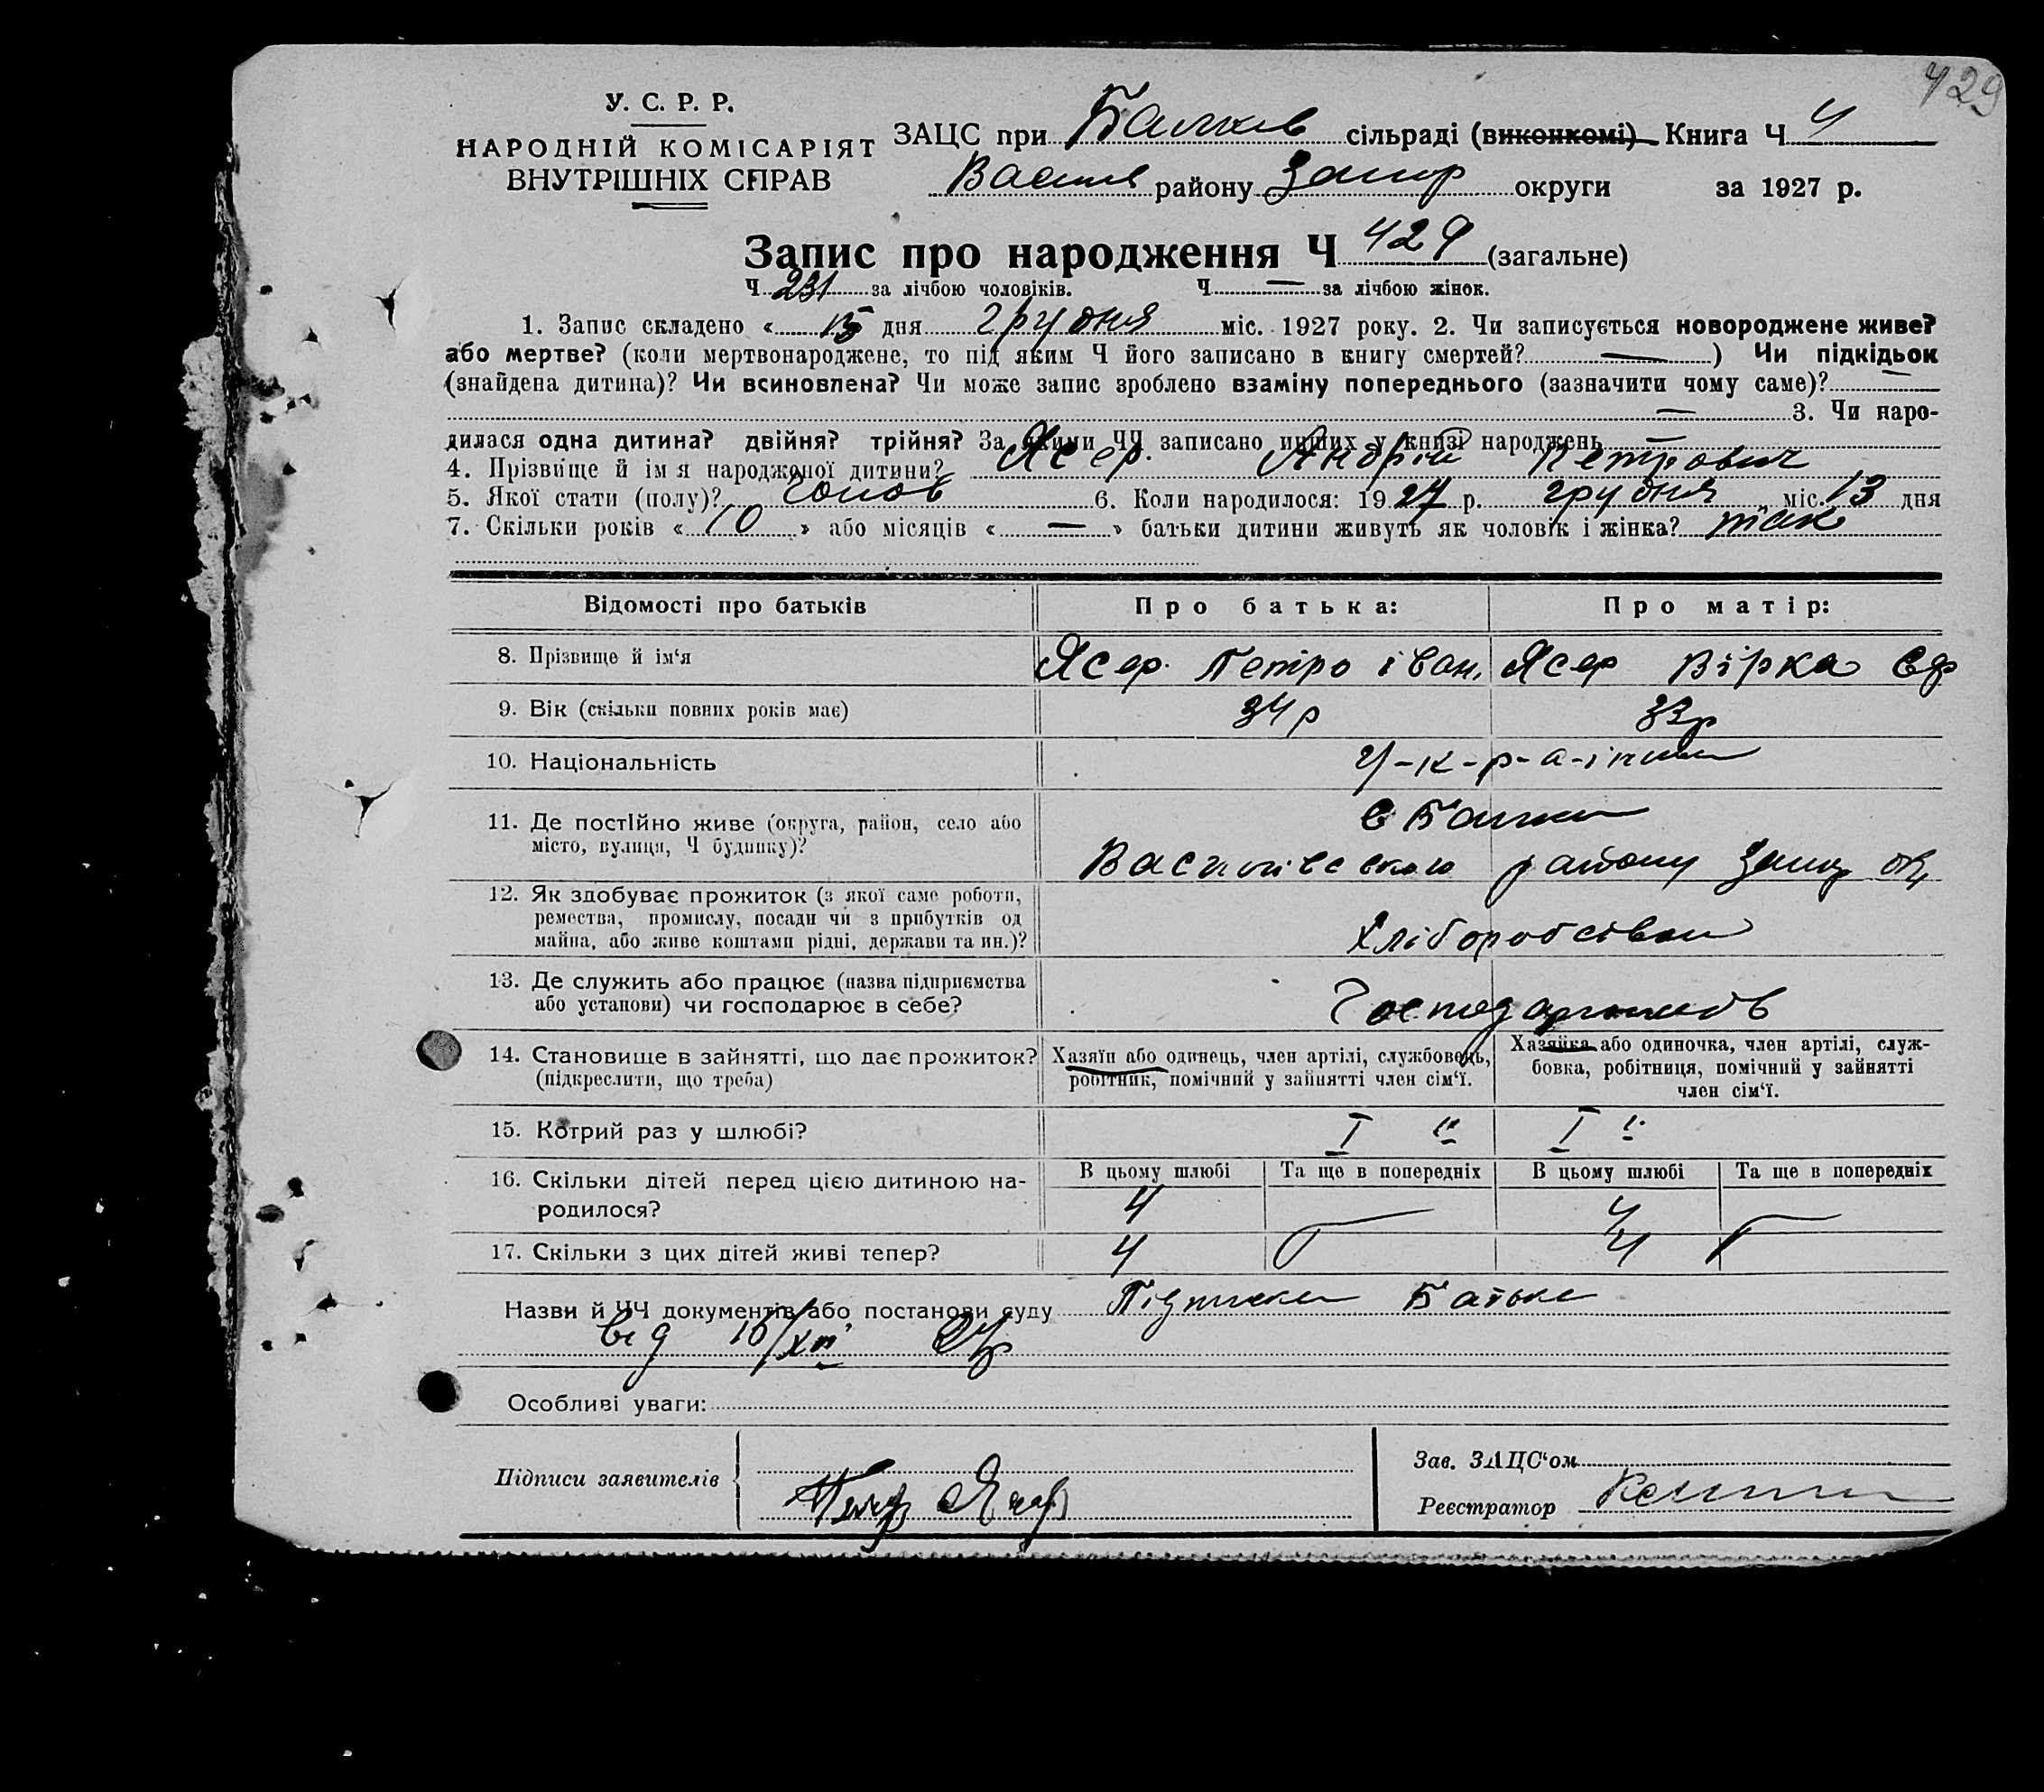 429
У. С. Р. Р.
НАРОДНІЙ КОМІСАРІЯТ
ВНУТРІШНІХ СПРАВ
ЗАЦС при Балков сільраді (виконкомі) Книга Ч 4
Васил району Запор округи за 1927 р.
Запис про народження Ч 429 (загальне)
Ч 231 за лічбою чоловіків. Ч — за лічбою жінок.
1. Запис складено « 15 дня грудня міс. 1927 року. 2. Чи записується новороджене живе?
або мертве? (коли мертвонароджене, то під яким Ч його записано в книгу смертей? — ) Чи підкідьок
(знайдена дитина)? Чи всиновлена? Чи може запис зроблено взаміну попереднього (зазначити чому саме)? —
— 3. Чи наро-
дилася одна дитина? двійня? трійня? За якими ЧЧ записано инших у книзі народжень —
4. Прізвище й імя народженої дитини? Ясер Андрій Петрович
5. Якої стати (полу)? чолов 6. Коли народилося: 1927 р. грудня міс. 13 дня
7. Скільки років « 10 » або місяців « — » батьки дитини живуть як чоловік і жінка? так
Відомості про батьків Про батька: Про матір:
8. Прізвище й ім‘я Ясер Петро іван. Ясер Вірка Єф
9. Вік (скільки повних років має) 34 р 33 р
10. Національність У-к-р-а-їнци
11. Де постійно живе (округа, район, село або
місто, вулиця, Ч будинку)? с Балки
Василівського району Запор ок
12. Як здобуває прожиток (з якої саме роботи,
ремества, промислу, посади чи з прибутків од
майна, або живе коштами рідні, держави та ин.)? Хліборобством
13. Де служить або працює (назва підприємства
або установи) чи господарює в себе?
14. Становище в зайнятті, що дає прожиток?
(підкреслити, що треба)
Хазяїн або одинець, член артілі, службовець,
робітник, помічний у зайнятті член сім‘ї.
Хазяйка або одиночка, член артілі, служ-
бовка, робітниця, помічний у зайнятті
член сім‘ї.
15. Котрий раз у шлюбі? I й I й
В цьому шлюбі Та ще в попередніх В цьому шлюбі Та ще в попередніх
16. Скільки дітей перед цією дитиною на-
родилося? 4 — 4 —
17. Скільки з цих дітей живі тепер? 4 4
Назви й ЧЧ документів або постанови суду Підписка Батька
від 15/XII 27р
Особливі уваги:
Підписи заявителів
Петр Ясер
Зав. ЗАЦС‘ом
Реєстратор